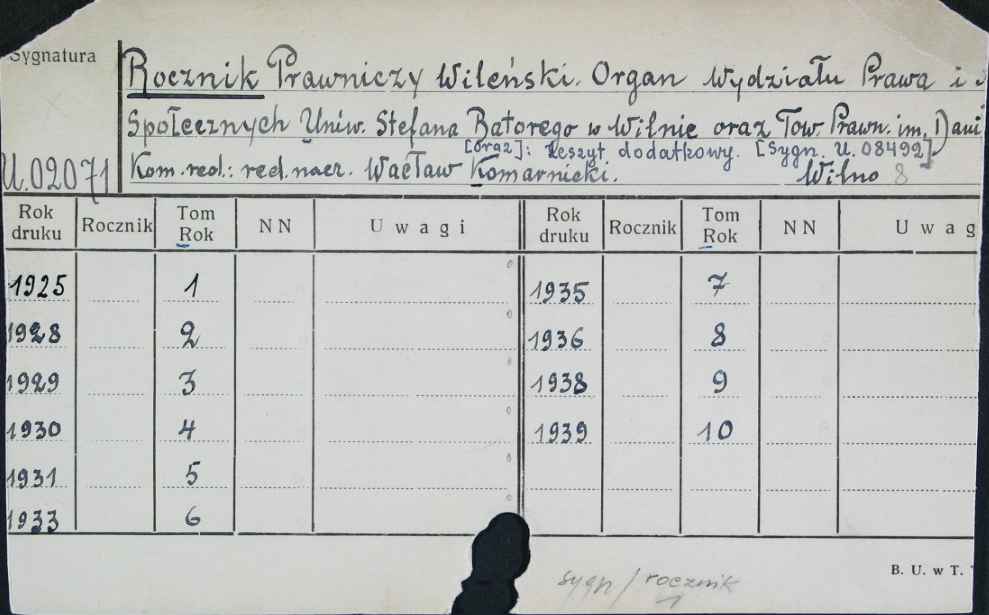 Sygnatura
Rocznik Prawniczy Wileński. Organ Wydziału Prawa i
Społecznych Uniw. Stefana Batorego w Wilnie oraz Tow. Prawn. im. Dani
[oraz]: Zeszyt dodatkowy. [Sygn. U. 08492]
U.02071 Kom. red.: red. nacz. Wacław Komarnicki. Wilno 8
Rok druku Rocznik Tom Rok NN Uwagi Rok druku Rocznik Tom Rok NN Uwag
1925 1 1935 7
1928 2 1936 8
1929 3 1938 9
1930 4 1939 10
1931 5
1933 6
B. U. w T.
sygn/rocznik
1